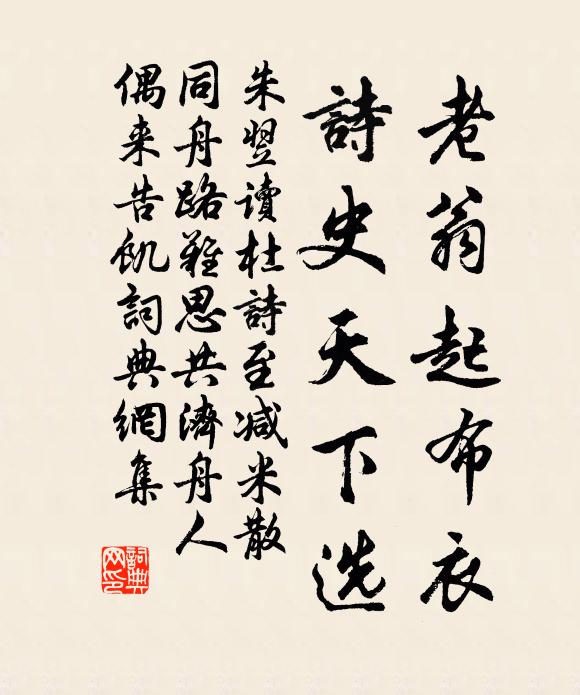 老翁起布衣
詩史天下选
朱翌讀杜詩至减米散
同舟路難思共濟舟人
偶来告飢詞典網集
詞典网印